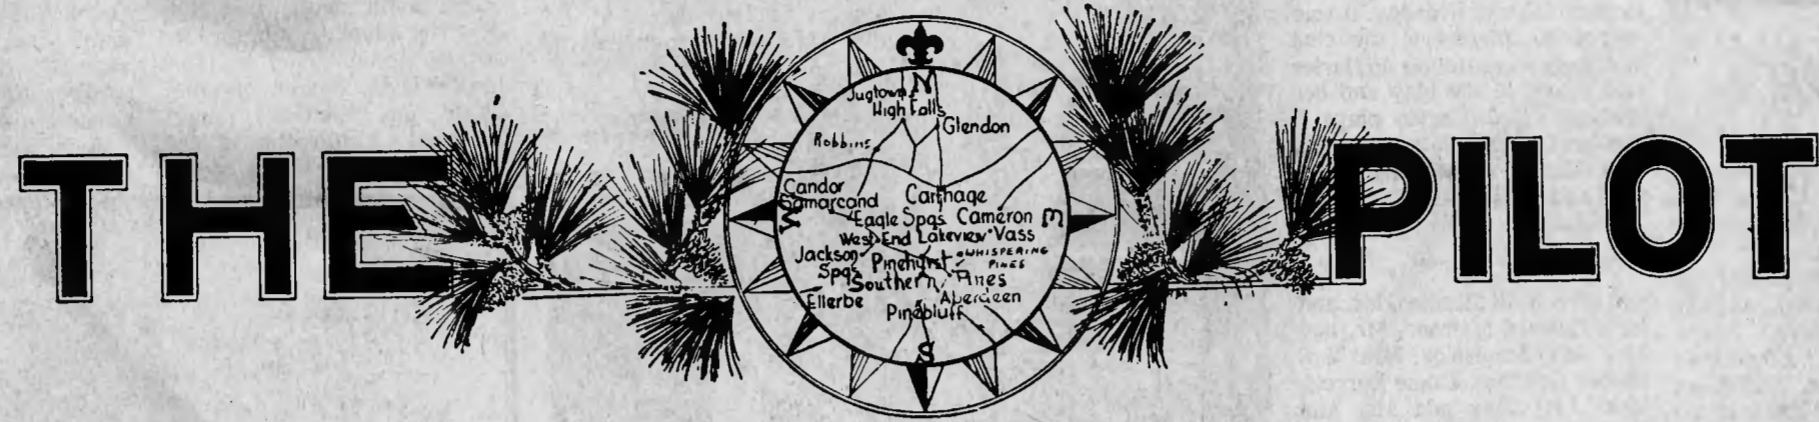 THE PILOT
N
Jugtown
High Falls
Glendon
Robbins
Candor
Samarcand
Carthage
W
Eagle Spgs. Cameron E
West End Lakeview Vass
Jackson Spgs.
Pinehurst
WHISPERING PINES
Southern Pines
Ellerbe
Aberdeen
Pinebluff
S